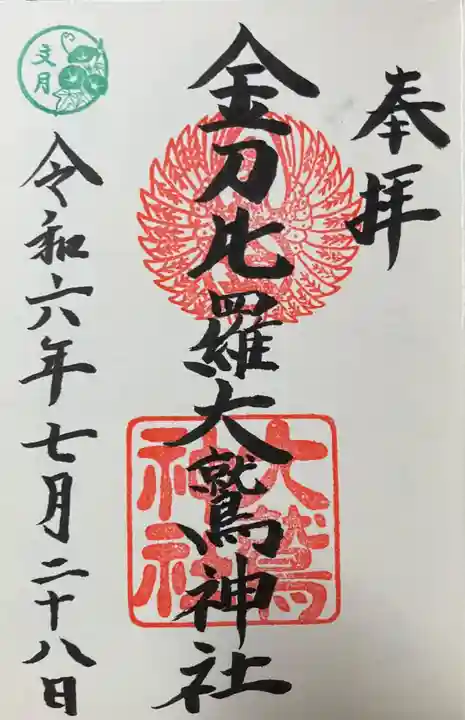 奉拝
金刀比羅大鷲神社
大鷲
神社
令和六年七月二十八日
文月